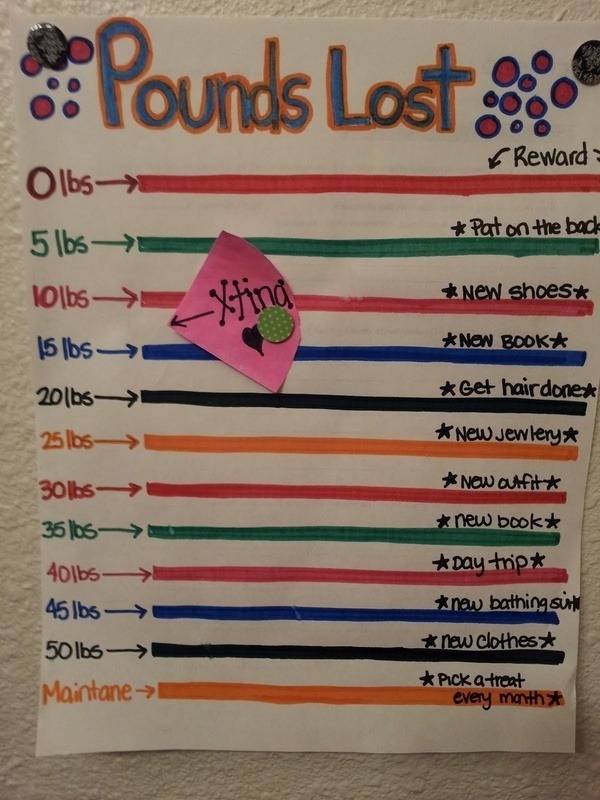 Pounds Lost
Reward
0 lbs
5 lbs ★ Pat on the back
10 lbs ★ New shoes ★
Xtina
15 lbs ★ New Book ★
20 lbs ★ Get hair done ★
25 lbs ★ New Jewlery ★
30 lbs ★ New outfit ★
35 lbs ★ new book ★
40 lbs ★ Day trip ★
45 lbs ★ new bathing suit ★
50 lbs ★ new clothes ★
Maintane ★ Pick a treat
every month ★